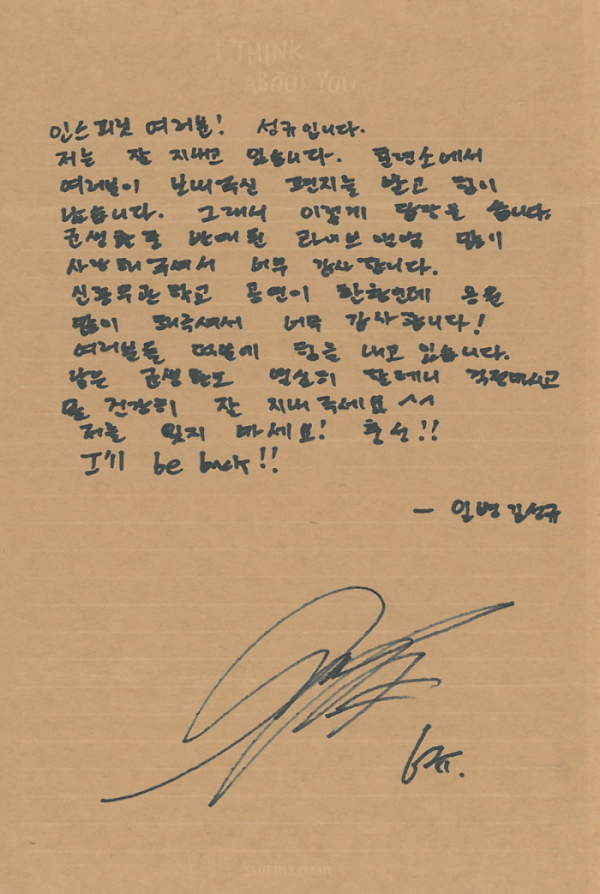 I THINK
ABOUT YOU
인스피릿 여러분! 성규입니다.
저는 잘 지내고 있습니다. 훈련소에서
여러분이 보내주신 편지를 받고 힘이
났습니다. 그래서 이렇게 답장을 씁니다.
군생활로 라이브 앨범 많이
사랑해주셔서 너무 감사합니다.
신흥무관학교 공연이 한창인데 응원
많이 해주셔서 너무 감사합니다!
여러분들 덕분에 힘을 내고 있습니다.
남은 군생활도 열심히 할테니 걱정마시고
몸 건강히 잘 지내주세요 ^^
저를 잊지 마세요! 충성!!
I'll be back!!
- 일병 김성규